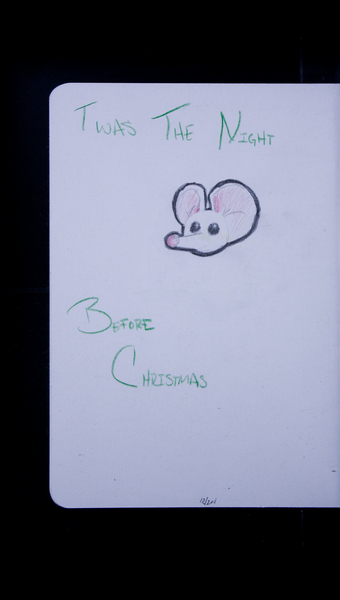 Twas The Night
Before
Christmas
12/24